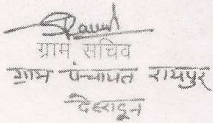 ग्राम सचिव
ग्राम पंन्चायत रायपुर
देहरादून